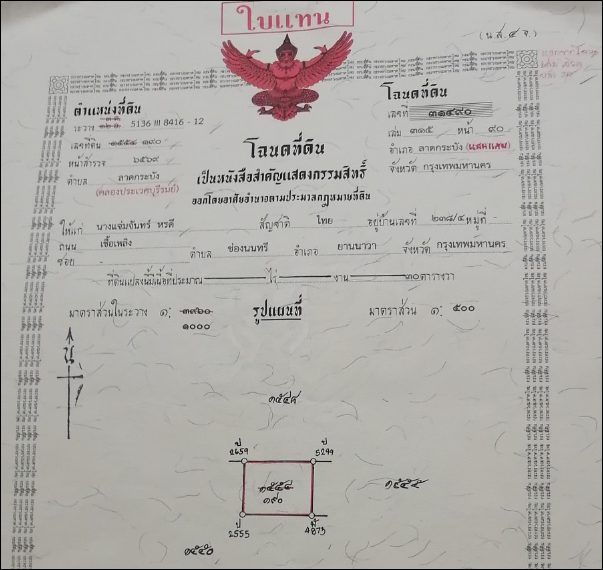 ใบแทน
(น.ส.๔ จ.)
ตำแหน่งที่ดิน
ระวาง 5136 III 8416 - 12
เลขที่ดิน ๑๕๕๔ ๑๙๐
หน้าสำรวจ ๖๕๖๙
ตำบล ลาดกระบัง
(คลองประเวศบุรีรมย์)
โฉนดที่ดิน
เลขที่ ๓๑๔๙๐
เล่ม ๓๑๕ หน้า ๙๐
อำเภอ ลาดกระบัง (แสนแสบ)
จังหวัด กรุงเทพมหานคร
โฉนดที่ดิน
เป็นหนังสือสำคัญแสดงกรรมสิทธิ์
ออกโดยอาศัยอำนาจตามประมวลกฎหมายที่ดิน
ให้แก่ นางแจ่มจันทร์ หรดี สัญชาติ ไทย อยู่บ้านเลขที่ ๒๓๘/๔ หมู่ที่ -
ถนน เชื้อเพลิง ตำบล ช่องนนทรี อำเภอ ยานนาวา จังหวัด กรุงเทพมหานคร
ซอย -
ที่ดินแปลงนี้มีเนื้อที่ประมาณ - ไร่ - งาน ๓๐ ตารางวา
มาตราส่วนในระวาง ๑: ๓๙๖๐ รูปแผนที่ มาตราส่วน ๑: ๕๐๐
๑๐๐๐
น
๑๕๔๘
ป ป
2659 5299
๑๕๕๔ ๑๕๕๕
๑๙๐
ป
2555 4873
๑๕๕๐